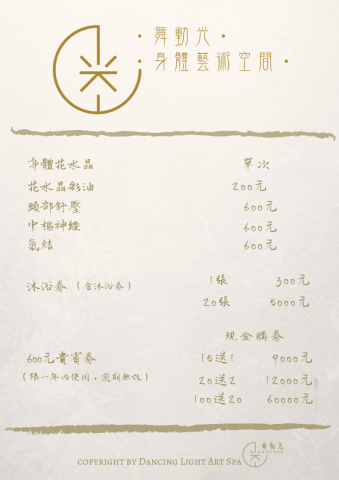 ·舞動光·
·身體藝術空間·
身體花水晶 單次
花水晶彩油 200元
頭部舒壓 600元
中樞神經 600元
氣結 600元
沐浴券（含沐浴券） 1張 300元
20張 5000元
現金購券
600元貴賓券 15送1 9000元
（限一年內使用，逾期無效） 20送2 12000元
100送20 60000元
舞動光
COPYRIGHT BY DANCING LIGHT ART SPA